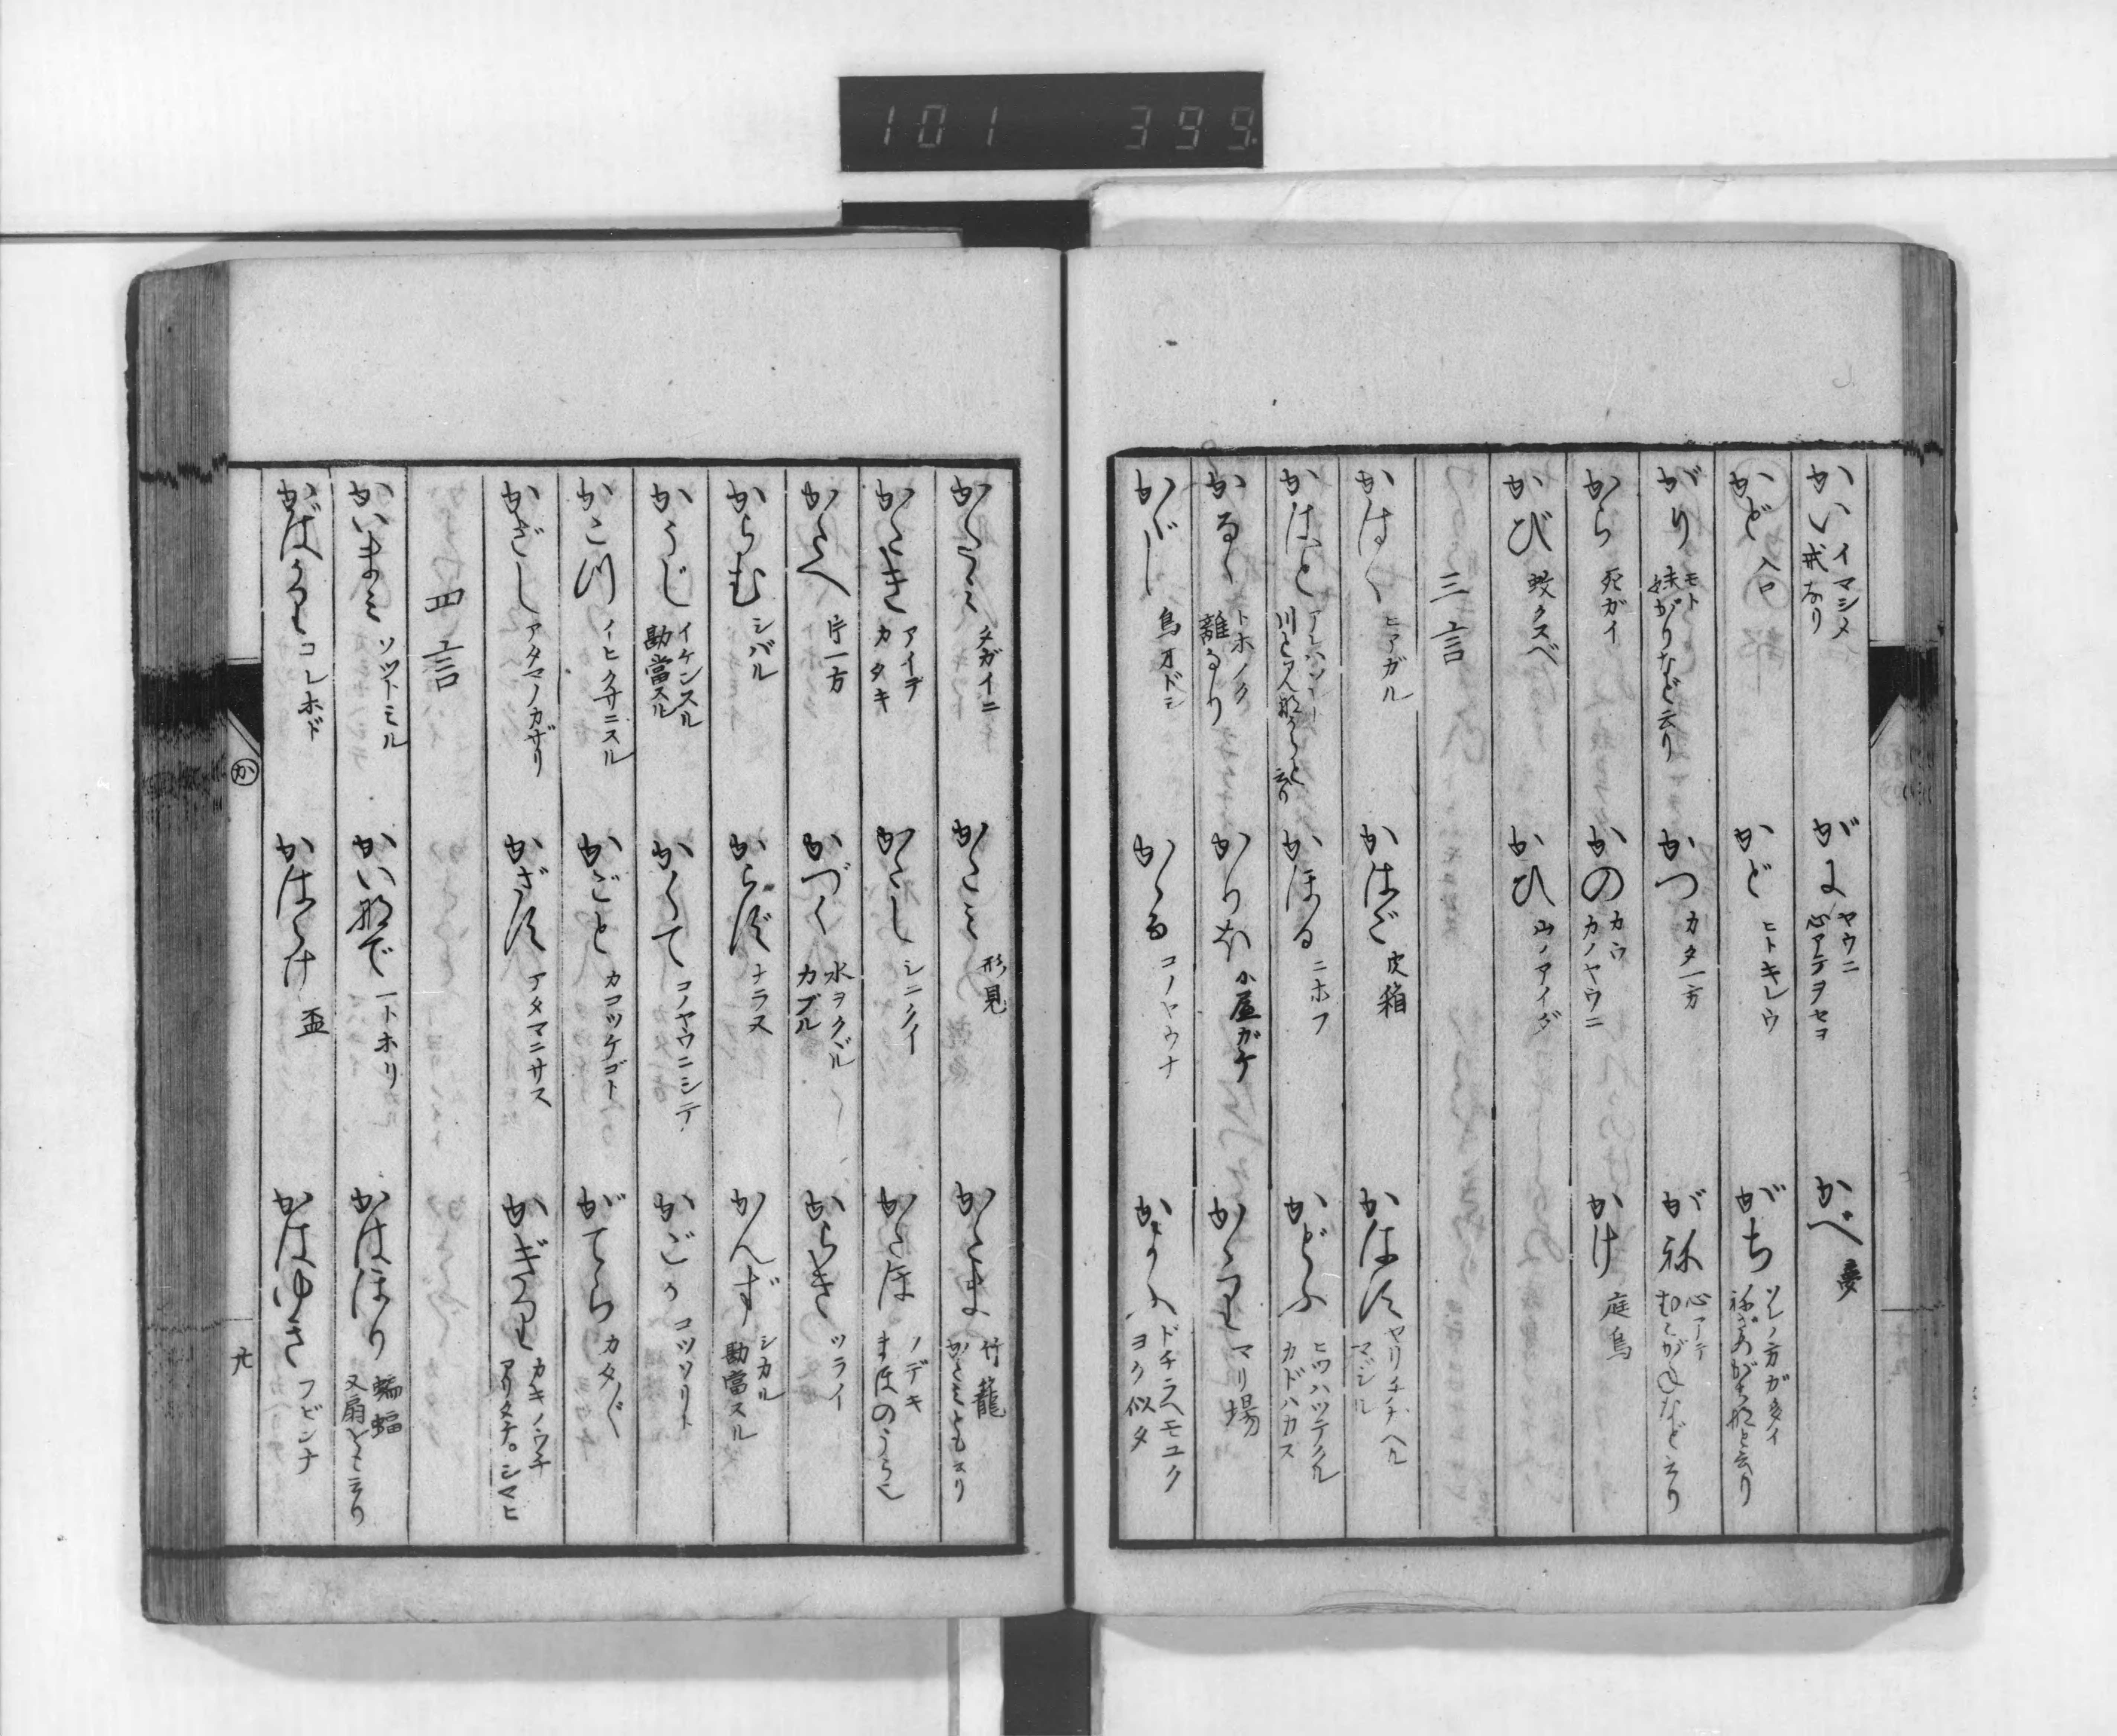 101 399
かい イマシメ 戒なり
がに ヤウニ 心アテヲセヨ
かべ 夢
かど 入口
かど ヒトキレウ
がち ソレノ方ガ多イ
がり モト 妹がりなど云り
かつ カタ一方
がね 心アテ むこがねなど云り
から 死ガイ
かの カウ カノヤウニ
かけ 庭鳥
かび 蚊クスベ
かひ 山ノアイダ
三言
かはく ヒアガル
かはご 皮箱
かはす ヤリチガヘル マジル
かはと
かほる ニホフ
かどふ カドハカス
かるゝ トホノク 離るゝなり
かりほ 小屋ガケ
かゝり マリ場
かゞし 鳥オドシ
かゝる コノヤウナ
かよふ ドチラヘモユク ヨク似タ
かたみ タガイニ
かたみ 形見
かたま 竹籠 かたみとも云り
かたき アイテ カタキ
かたし シニクイ
かたほ ノデキ まほのうら也
かたへ 片一方
かづく 水ヲクヾル カブル
からき ツライ
からむ シバル
からず ナラヌ
かんず シカル 勘當スル
かうじ イケンスル 勘當スル
かくて コノヤウニシテ
かごか コツソリト
かこつ イヒクサニスル
かごと カコツケゴト
がてら カタ〴〵
かざし アタマノカザリ
かざす アタマニサス
かぎり カキノウチ アリタケ。シマヒ
四言
かいまみ ソツトミル
かい那で 一トホリ
かはほり 蝙蝠 又扇をも云り
かばかり コレホド
かはらけ 盃
かはゆき フビンナ
か
九